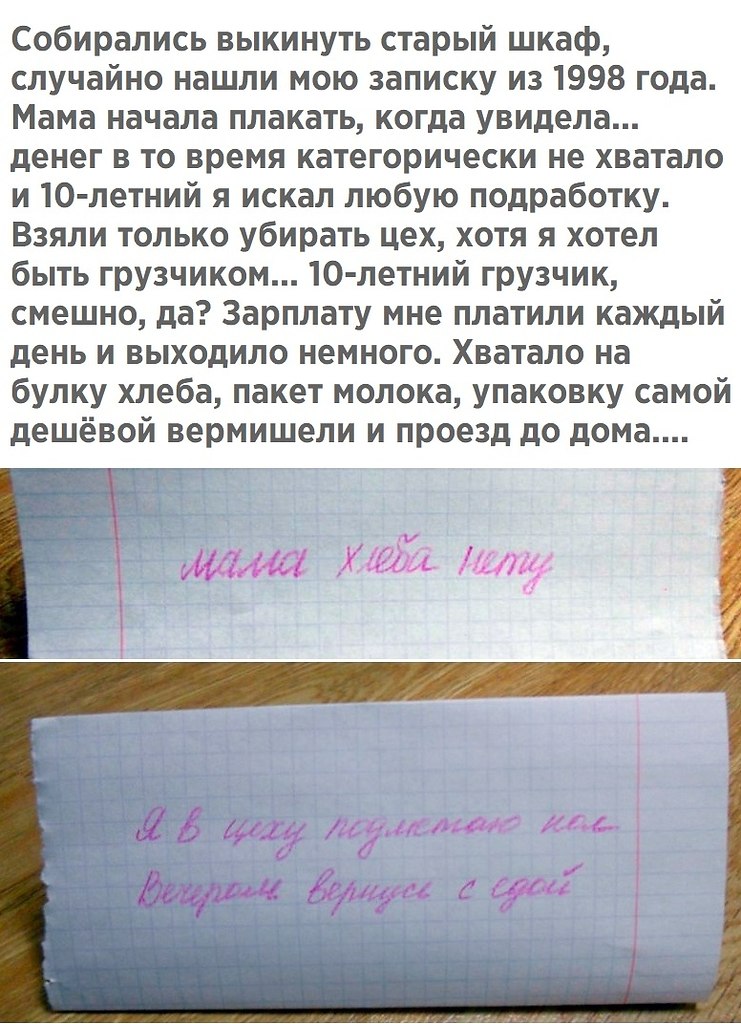 Собирались выкинуть старый шкаф,
случайно нашли мою записку из 1998 года.
Мама начала плакать, когда увидела...
денег в то время категорически не хватало
и 10-летний я искал любую подработку.
Взяли только убирать цех, хотя я хотел
быть грузчиком... 10-летний грузчик,
смешно, да? Зарплату мне платили каждый
день и выходило немного. Хватало на
булку хлеба, пакет молока, упаковку самой
дешёвой вермишели и проезд до дома....
мама хлеба нету
Я в цеху подметаю пол
Вечером вернусь с едой